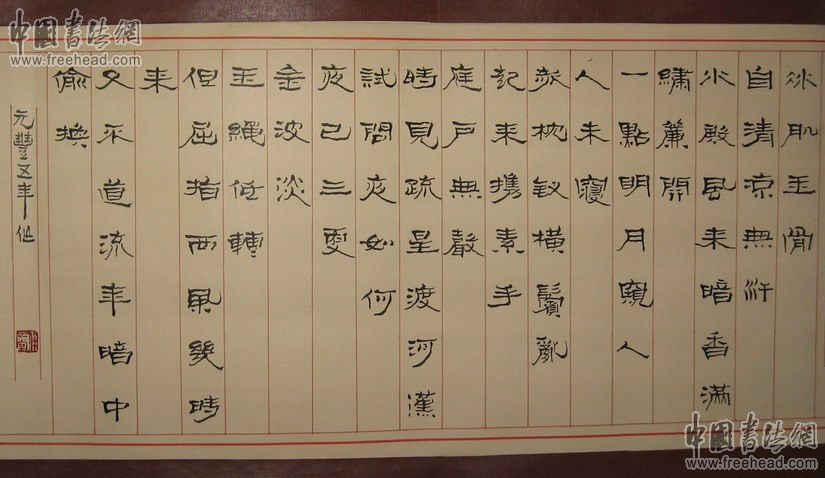 冰肌玉骨
自清涼無汗
水殿風来暗香滿
繡簾開
一點明月窺人
人未寢
欹枕釵橫鬢亂
起来攜素手
庭戶無聲
時見疏星渡河漢
試問夜如何
夜已三更
金波淡
玉繩低轉
但屈指西風幾時
来
又不道流年暗中
偷換
元豐五年作
中國書法網
www.freehead.com
中國書法網
www.freehead.com